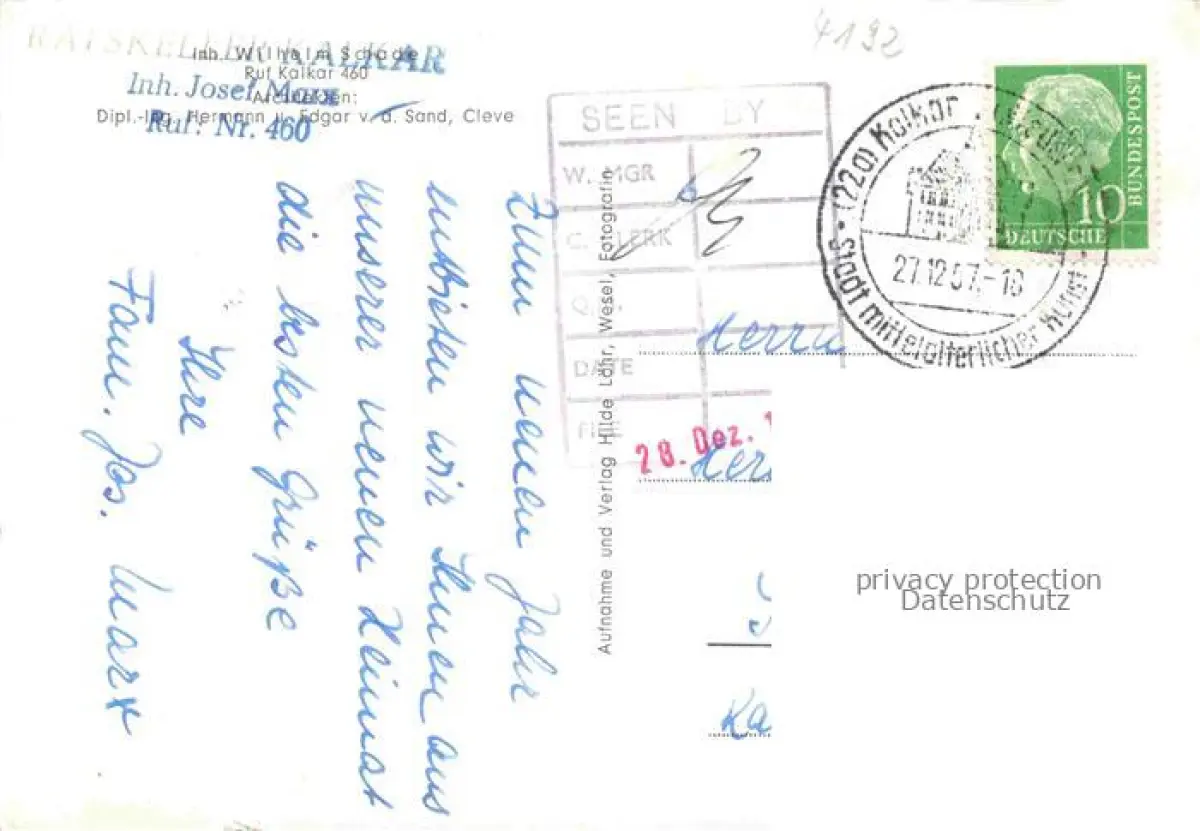 RATSKELLER KALKAR
Inh. Wilhelm Schade
Ruf Kalkar 460
Inh. Josef Marx
Architekten:
Dipl.-Ing. Hermann u. Edgar v. d. Sand, Cleve
Ruf: Nr. 460
Zum neuen Jahr
entbieten wir Ihnen aus
unserer neuen Heimat
die besten Grüße
Ihre
Fam. Jos. Marx
Aufnahme und Verlag Hilde Löhr, Wesel, Fotografin
4192
SEEN BY
W. MGR
C. CLERK
DATE
FILE
28. Dez.
(22a) Kalkar
Stadt mittelalterlicher Kunst
27.12.57.-18
10
DEUTSCHE
BUNDESPOST
Herrn
Her
Ka
privacy protection
Datenschutz